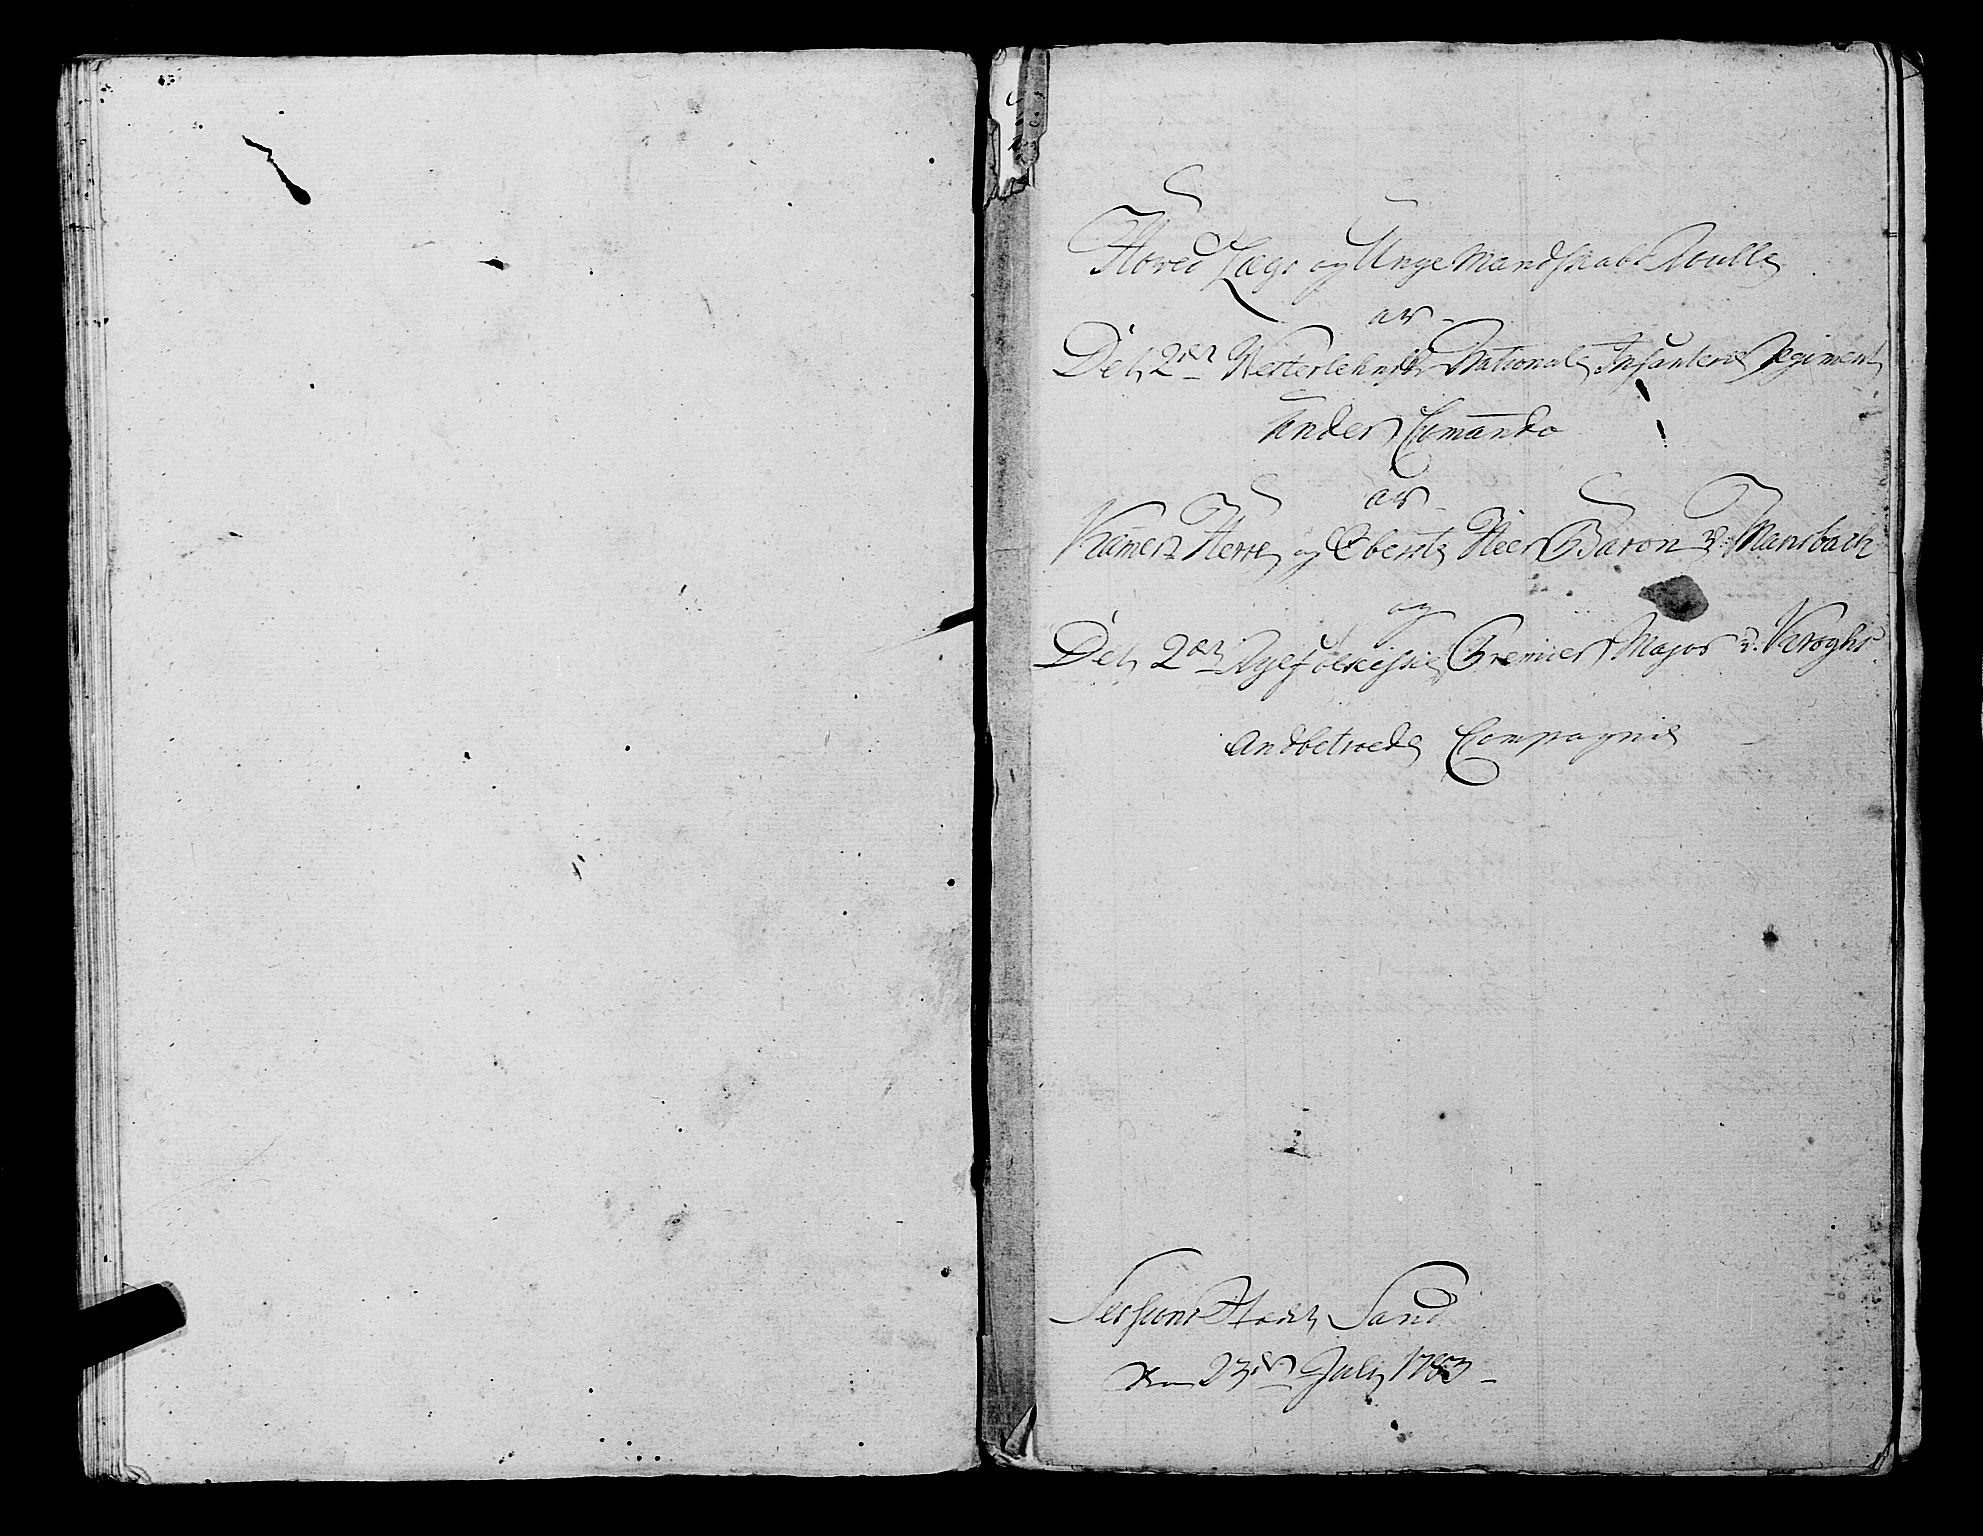 Hoved Lægs og Unge Mandskabs Roulle
av
Det 2den Westerlehnske Nationale Infanterie Regiment
Under Comando
av
Kamer Herre og Oberste Heer Baron v. Mansbach
og
Det 2det Ryefylkeske Premier Major v. Kroghs
Andbetroede Compagnie
Sessions Stædet Sand
den 23de July 1783